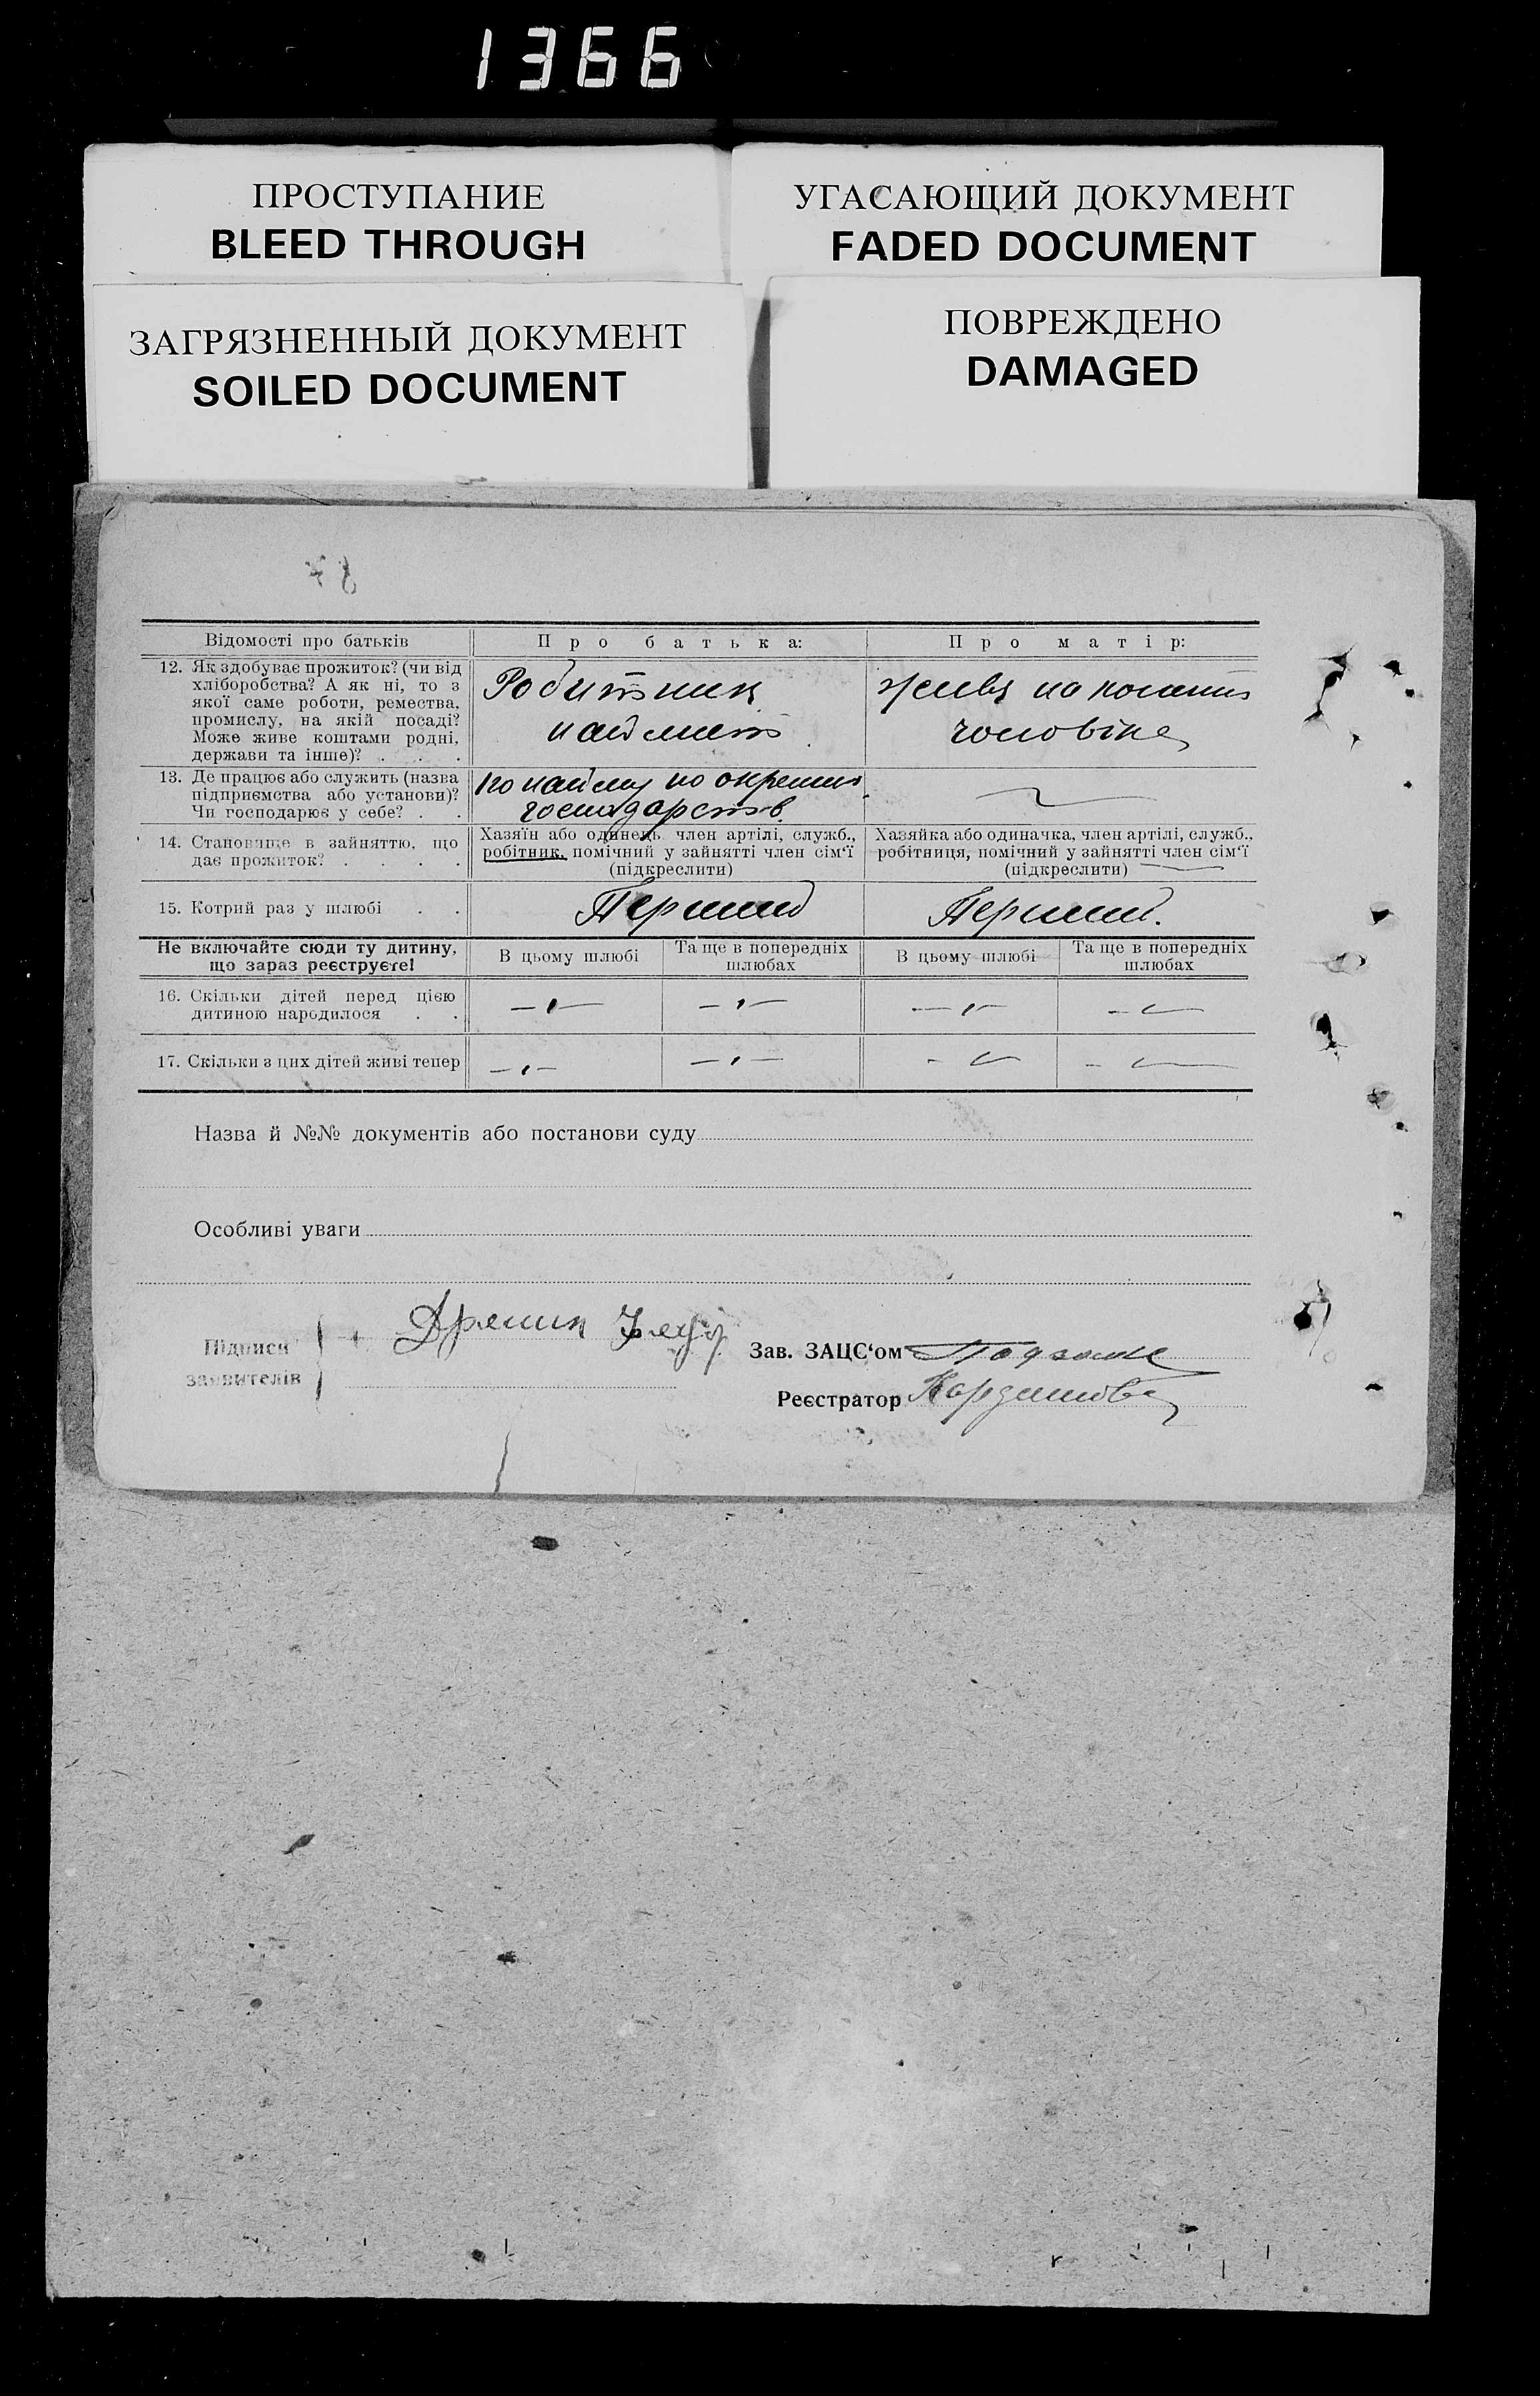 1366
ПРОСТУПАНИЕ
BLEED THROUGH
УГАСАЮЩИЙ ДОКУМЕНТ
FADED DOCUMENT
ЗАГРЯЗНЕННЫЙ ДОКУМЕНТ
SOILED DOCUMENT
ПОВРЕЖДЕНО
DAMAGED
Відомості про батьків
Про батька:
Про матір:
12. Як здобуває прожиток? (чи від
хліборобства? А як ні, то з
якої саме роботи, ремества,
промислу, на якій посаді?
Може живе коштами родні,
держави та інше)? . . .
Робитник
наймит
живе на кошти
чоловіка
13. Де працює або служить (назва
підприємства або установи)?
Чи господарює у себе? . .
по найму по окремих
господарств.
14. Становище в зайняттю, що
дає прожиток? . . . .
Хазяїн або одинець член артілі, служб.,
робітник, помічний у зайнятті член сім'ї
(підкреслити)
Хазяйка або одиначка, член артілі, служб.,
робітниця, помічний у зайнятті член сім'ї
(підкреслити)
15. Котрий раз у шлюбі . .
Перший
Перший.
Не включайте сюди ту дитину,
що зараз реєструєте!
В цьому шлюбі
Та ще в попередніх
шлюбах
В цьому шлюбі
Та ще в попередніх
шлюбах
16. Скільки дітей перед цією
дитиною народилося . .
17. Скільки з цих дітей живі тепер
Назва й №№ документів або постанови суду
Особливі уваги
Підписи
заявителів
Зав. ЗАЦС'ом
Реєстратор